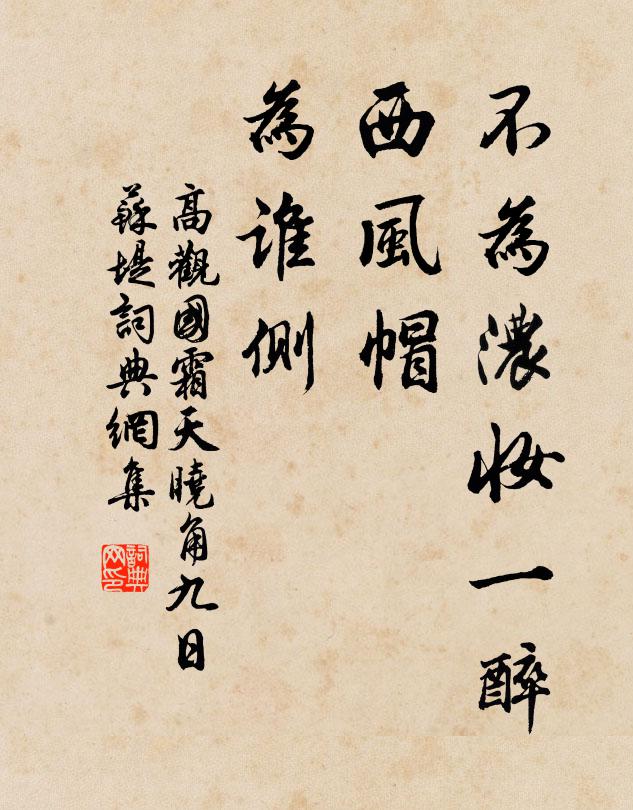 不為濃妝一醉
西風帽
為誰側
高觀國霜天曉角九日
蘇堤詞典網集
詞典網印